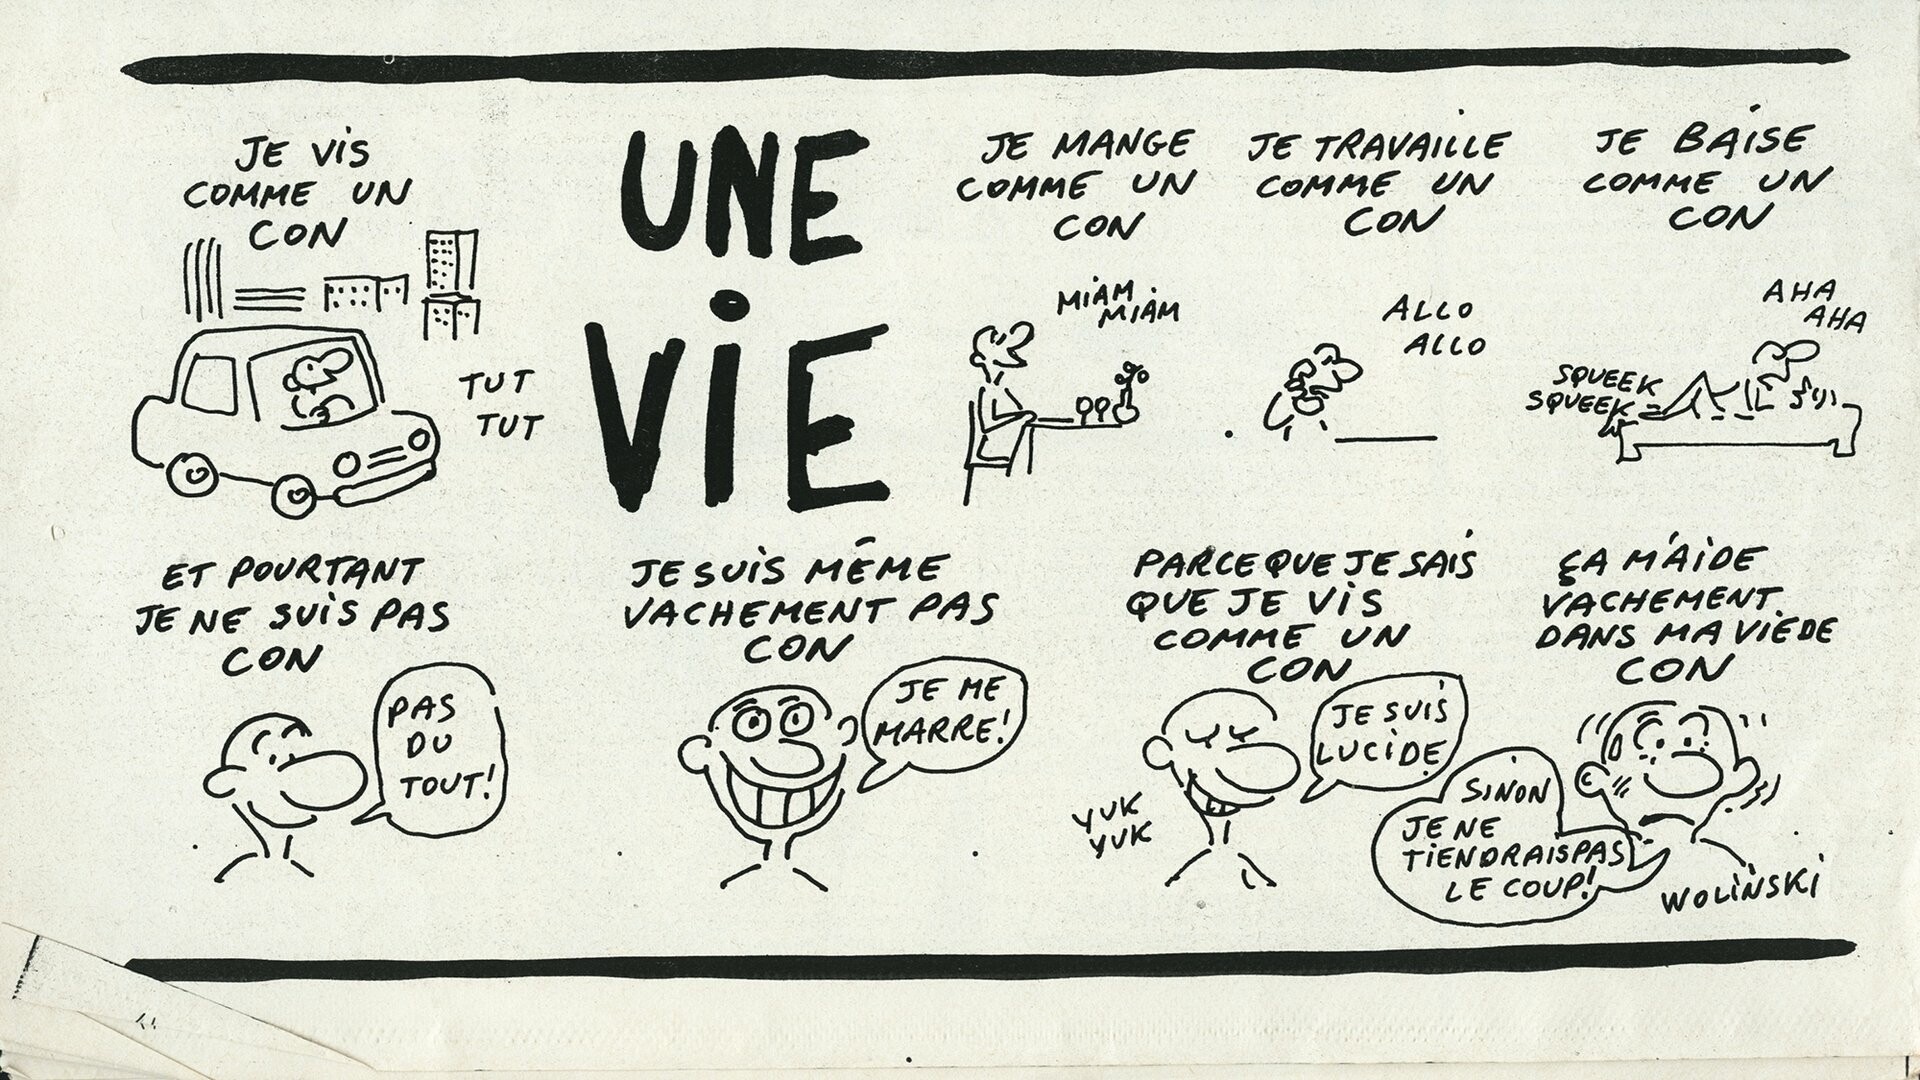 JE VIS
COMME UN
CON
TUT
TUT
UNE
VIE
JE MANGE
COMME UN
CON
MIAM
MIAM
JE TRAVAILLE
COMME UN
CON
ALLO
ALLO
JE BAISE
COMME UN
CON
AHA
AHA
SQUEEK
SQUEEK
ET POURTANT
JE NE SUIS PAS
CON
PAS
DU
TOUT!
JE SUIS MÊME
VACHEMENT PAS
CON
JE ME
MARRE!
PARCE QUE JE SAIS
QUE JE VIS
COMME UN
CON
JE SUIS
LUCIDE
YUK
YUK
ÇA M'AIDE
VACHEMENT
DANS MA VIE DE
CON
SINON
JE NE
TIENDRAIS PAS
LE COUP!
WOLINSKI